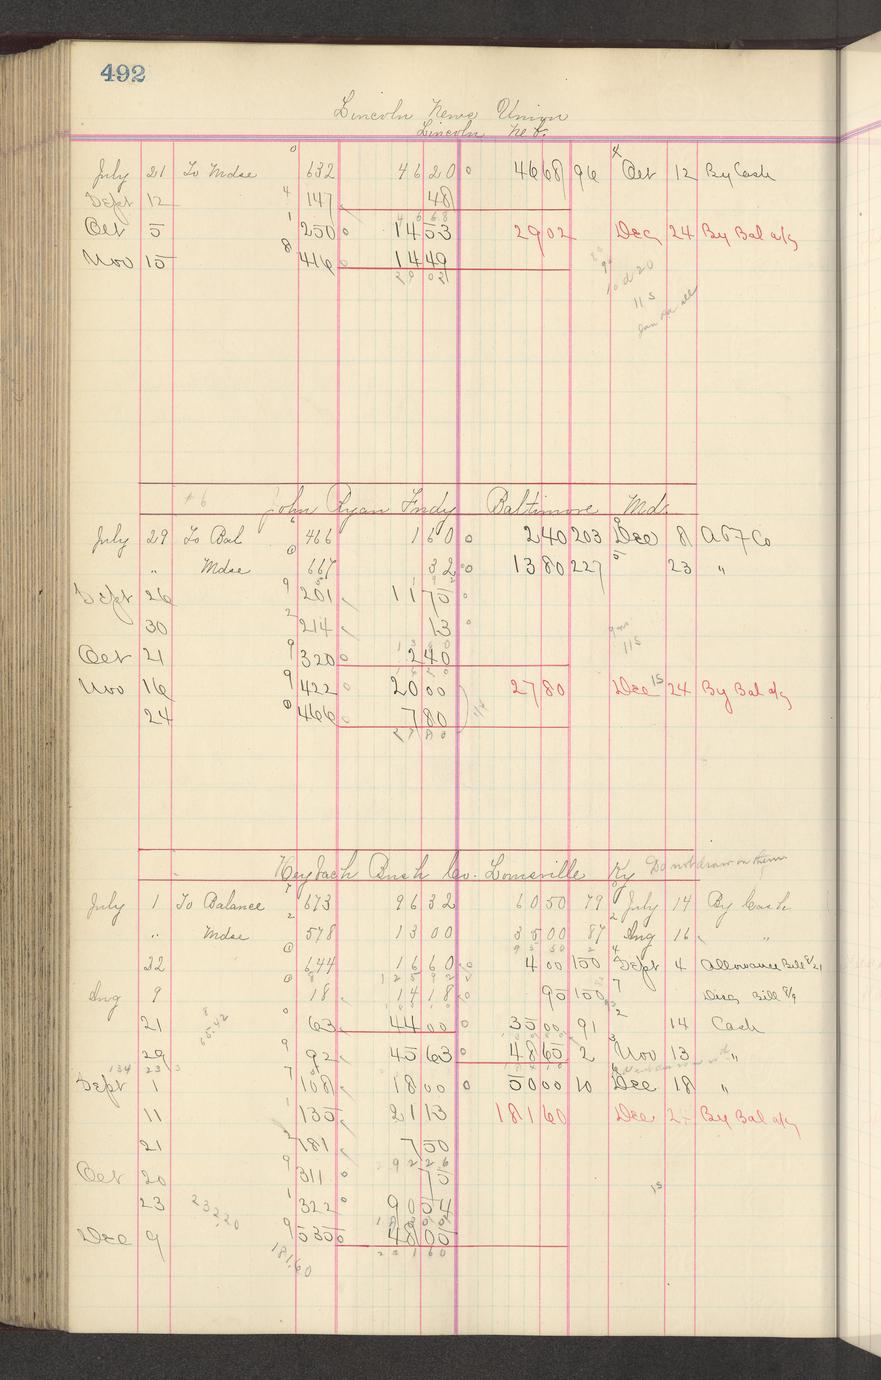 492
Lincoln News Union
Lincoln Neb.
July 21 To Mdse 0 632 46 20 0 46 68 96 4 Oct 12 By Cash
Sept 12 4 147 48
46 68
Oct 5 1 250 0 14 53 29 02 Dec 24 By Bal a/c
Nov 15 8 416 0 14 49
29 02
10 d 20
11 5
John Ryan Fndy Baltimore Md.
July 29 To Bal 466 1 60 0 2 40 203 Dec 8 A T F Co
" Mdse 0 667 32 0 13 80 227 5 23 "
Sept 26 9 201 11 75 0
30 2 214 13 0
Oct 21 9 320 0 2 40
Nov 16 9 422 0 20 00 27 80 Dec 24 By Bal a/c
24 0 466 0 7 80
27 80
Bush Co. Louisville Ky Do not draw on them
July 1 To Balance 7 673 96 32 60 50 79 July 14 By Cash
" Mdse 2 578 13 00 35 00 87 2 Aug 16 "
95 50
0 644 16 60 0 4 00 150 4 Sept 4 Allowance Bill
125 92
Aug 9 0 18 14 18 0 95 150 7 Disc Bill 8/9
21 0 63 44 00 0 35 00 91 2 14 Cash
29 9 92 45 63 0 48 65 2 3 Nov 13 "
Sept 1 7 108 18 00 0 50 00 10 Dec 18 "
11 1 135 21 13 181 60 Dec By Bal a/c
21 181 7 50
92 26
Oct 20 9 311 0 75
23 1 322 0 90 54
232.20
Dec 9 9 535 0 48 05
181.60